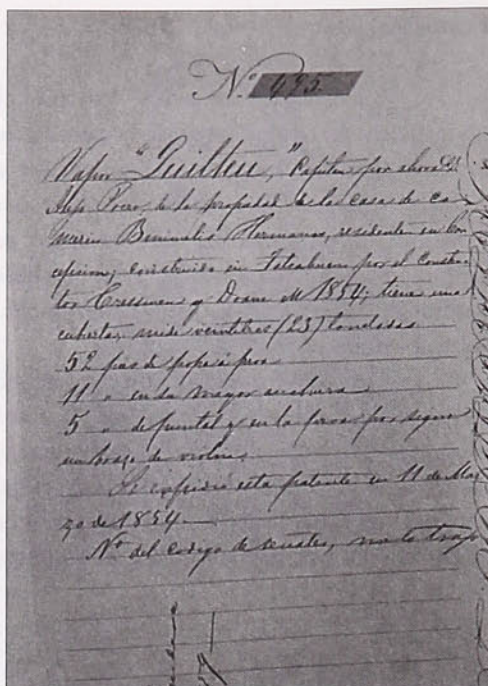 N.º 495.
Vapor "Quilteu", Capitan por ahora Dⁿ
de la propiedad de la casa de co
mercio Hermanos, residente en Con
cepcion, construido en Talcahuano por el Construc
tor y Doane el 1854; tiene una
cubierta, mide veintitres (23) toneladas
52 pies de popa á proa
11 " en su mayor anchura
5 " de puntal y en la proa por
un de violin.
Se espidió esta patente en 11 de Mar
zo de 1854.—
Nº del codigo de señales, no lo trajo